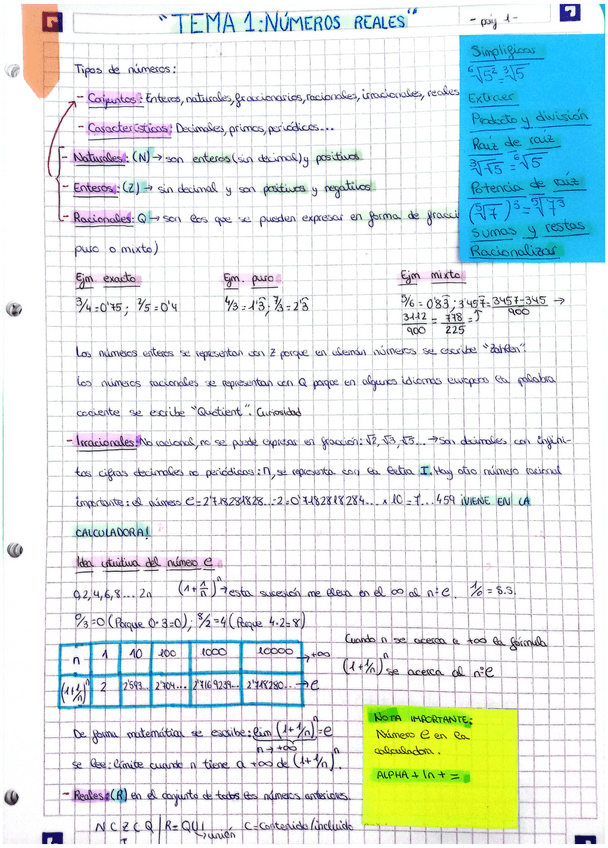 "TEMA 1: NÚMEROS REALES"
- pág 1 -
Tipos de números:
- Conjuntos: Enteros, naturales, fraccionarios, racionales, irracionales, reales
- Características: Decimales, primos, periódicos...
- Naturales: (N) → son enteros (sin decimal) y positivos
- Enteros: (Z) → sin decimal y son positivos y negativos
- Racionales: Q → son los que se pueden expresar en forma de fracci
puro o mixto)
Simplificar
⁶√5² = ³√5
Extraer
Producto y división
Raíz de raíz
³√√5 = ⁶√5
Potencia de raíz
(⁵√7)³ = ⁵√7³
Sumas y restas
Racionalizar
Ejm exacto
Ejm. puro
Ejm mixto
3/4 = 0'75; 2/5 = 0'4
4/3 = 1'3̂; 7/3 = 2'3̂
5/6 = 0'83̂; 3'457̂ = 3457-345/900 →
3112/900 = 778/225 = ↑
Los números enteros se representan con Z porque en alemán números se escribe "Zahlen".
Los números racionales se representan con Q porque en algunos idiomas europeos la palabra
cociente se escribe "Quotient". Curiosidad
- Irracionales: No racional, no se puede expresar en fracción: √2, √3, √5... → Son decimales con infini-
tas cifras decimales no periódicas: π, se representa con la letra I. Hay otro número racional
importante: el número e = 2'718281828... -2 = 0'7182818284... × 10 = 7...459 ¡VIENE EN LA
CALCULADORA!
Idea intuitiva del número e
0,2,4,6,8... 2n (1+1/n)ⁿ → esta sucesión me lleva en el ∞ al nº e. 1/0 = S.S.
0/3 = 0 (Porque 0·3=0); 8/2 = 4 (Porque 4·2=8)
n 1 10 100 1000 10000 → +∞
(1+1/n)ⁿ 2 2'593... 2'704... 2'7169239... 2'718280... → e
Cuando n se acerca a +∞ la fórmula
(1+1/n)ⁿ se acerca al nº e
De forma matemática se escribe: lim (1+1/n)ⁿ = e
n → +∞
se lee: límite cuando n tiene a +∞ de (1+1/n)ⁿ.
NOTA IMPORTANTE:
Número e en la
calculadora.
ALPHA + ln + =
- Reales: (R) en el conjunto de todos los números anteriores.
N C Z C Q | R = Q U I
unión
C = Contenido/incluido
I